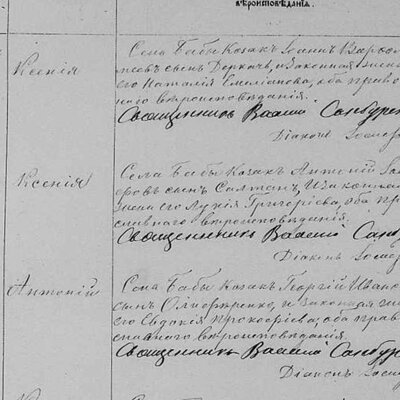 вѣроисповѣданія.
Ксенія
Села Бабы Козакъ Іоаннъ Варѳоло
меевъ сынъ Деркачъ, и законная жена
его Наталія Емиліанова, оба право
наго вѣроисповѣданія.
Священникъ Василій Самбурс
Діаконъ
Ксенія
Села Бабы Козакъ Антоній
овъ сынъ Салтанъ, и законная
жена его Лукія Григоріева, оба пра
славнаго вѣроисповѣданія.
Священникъ Василій Самбу
Діаконъ
Антоній
Села Бабы Козакъ Георгій Ивано
сынъ и законная же
его Евдокія Прокофіева, оба прав
славнаго вѣроисповѣданія.
Священникъ Василій Самбур
Діаконъ
Села Бабы Козакъ